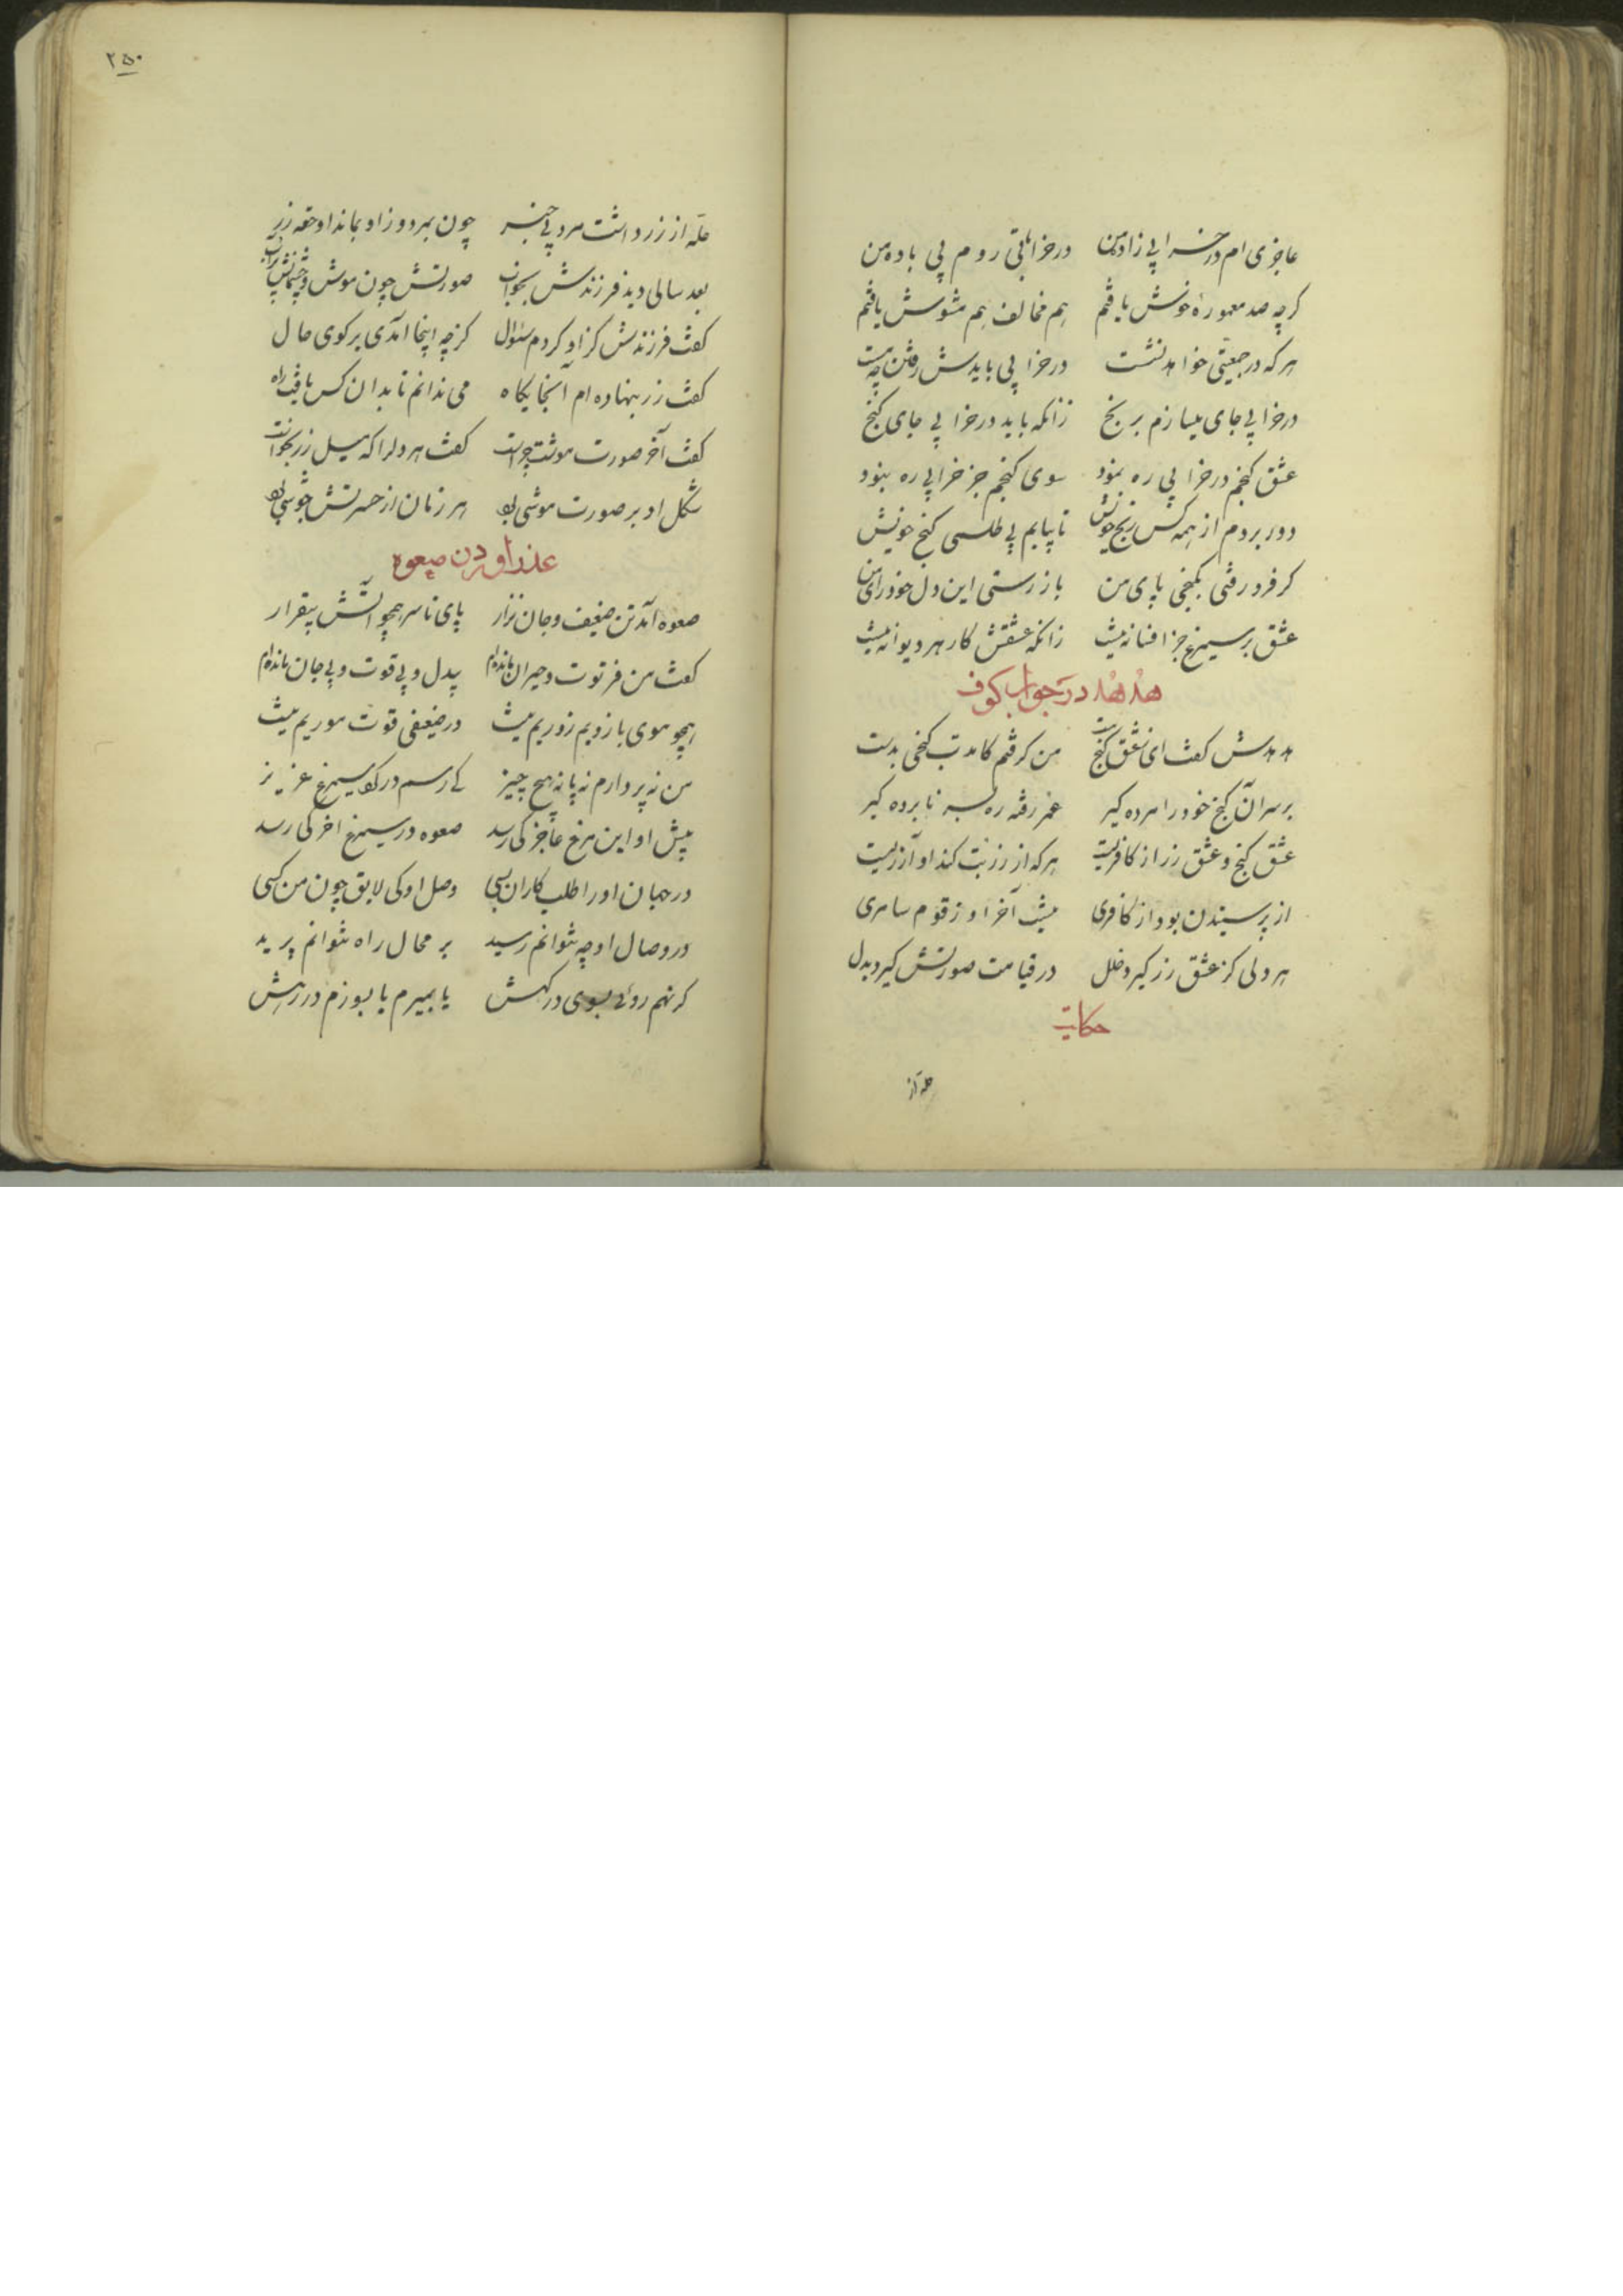 عاجزی ام در خرابی زاد من در خراباتی روم بی باده من
کرچه صد معموره خوش یافتم هم مخالف هم مشوش یافتم
هرکه در جمعیتی خواهد نشست در خرابی بایدش رفتن چو مست
در خرابی جای میسازم برنج زانکه باید در خرابی جای کنج
عشق کنجم در خرابی ره نمود سوی کنجم جز خرابی ره نبود
دور بردم از همه کس رنج خویش تا بیابم بی طلسمی کنج خویش
کر فرو رفتی بکنجی پای من باز رستی این دل خود رای من
عشق بر سیمرغ جز افسانه نیست زانکه عشقش کار هر دیوانه نیست
هدهد در جواب کوف
هدهدش کفت ای ز عشق کنج مست من کرفتم کامدت کنجی بدست
بر سر آن کنج خود را مرده کیر عمر رفته ره بسر نابرده کیر
عشق کنج و عشق زر از کافریست هرکه از زر بت کند او آزریست
زر پرستیدن بود از کافری نیستی آخر ز قوم سامری
هر دلی کز عشق زر کیرد خلل در قیامت صورتش کیرد بدل
حکایت
حقه از
حقه از زر داشت مردی بی خبر چون بمرد و زو بماند او حقه زر
بعد سالی دید فرزندش بخواب صورتش چون موش و چشمانش پر آب
کفت فرزندش کزو کردم سئوال کز چه اینجا آمدی بر کوی حال
کفت زر بنهاده ام اینجایکاه می ندانم تا بدان کس یافت راه
کفت آخر صورت موشت چراست کفت هر دلرا که میل زر بخواست
شکل او بر صورت موشی بود هر زمان از حسرتش جوشی بود
عذر اوردن صعوه
صعوه آمد تن ضعیف و جان نزار پای تا سر همچو آتش بیقرار
کفت من فرتوت و حیران مانده ام بیدل و بی قوت و بی جان مانده ام
همچو موی بازویم زوریم نیست در ضعیفی قوت موریم نیست
من نه پر دارم نه پا نه هیچ چیز کی رسم در کوی سیمرغ عزیز
پیش او این مرغ عاجز کی رسد صعوه در سیمرغ اخر کی رسد
در جهان او را طلب کاران بسی وصل او کی لایق چون من کسی
در وصال او چو نتوانم رسید بر محال راه نتوانم پرید
کر نهم روئی بسوی درکهش یا بمیرم یا بسوزم در رهش
۲۵۰